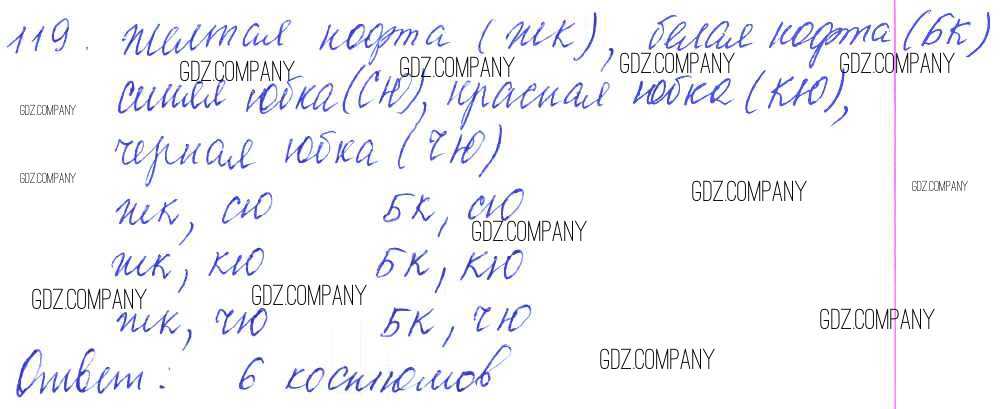 119. Желтая кофта (ЖК), белая кофта (БК)
GDZ.COMPANY GDZ.COMPANY GDZ.COMPANY GDZ.COMPANY
синяя юбка (СЮ), красная юбка (КЮ),
GDZ.COMPANY
черная юбка (ЧЮ)
GDZ.COMPANY GDZ.COMPANY GDZ.COMPANY
жк, сю БК, сю
GDZ.COMPANY
жк, кю БК, кю
GDZ.COMPANY GDZ.COMPANY
жк, чю БК, чю
GDZ.COMPANY
GDZ.COMPANY
Ответ: 6 костюмов